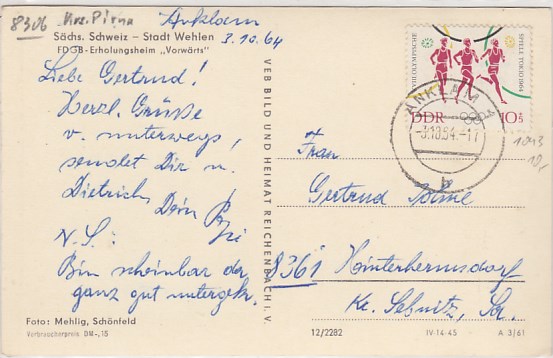 8306 Krs. Pirna
Anklam
3.10.64
Sächs. Schweiz — Stadt Wehlen
FDGB-Erholungsheim „Vorwärts"
Liebe Gertrud!
Herzl. Grüße
v. unterwegs,
sendet Dir u.
Dietrich, Dein
N.S.:
Bin scheinbar da
ganz gut untergek.
Foto: Mehlig, Schönfeld
Verbraucherpreis DM -,15
VEB BILD UND HEIMAT REICHENBACH I. V.
OLYMPISCHE
SPIELE TOKIO 1964
DDR 10+5
ANKLAM
-3.10.64.-17
b
1043
Frau
Gertrud
8361 Hinterhermsdorf
Kr. Sebnitz, Sa.
12/2282
IV-14-45
A 3/61